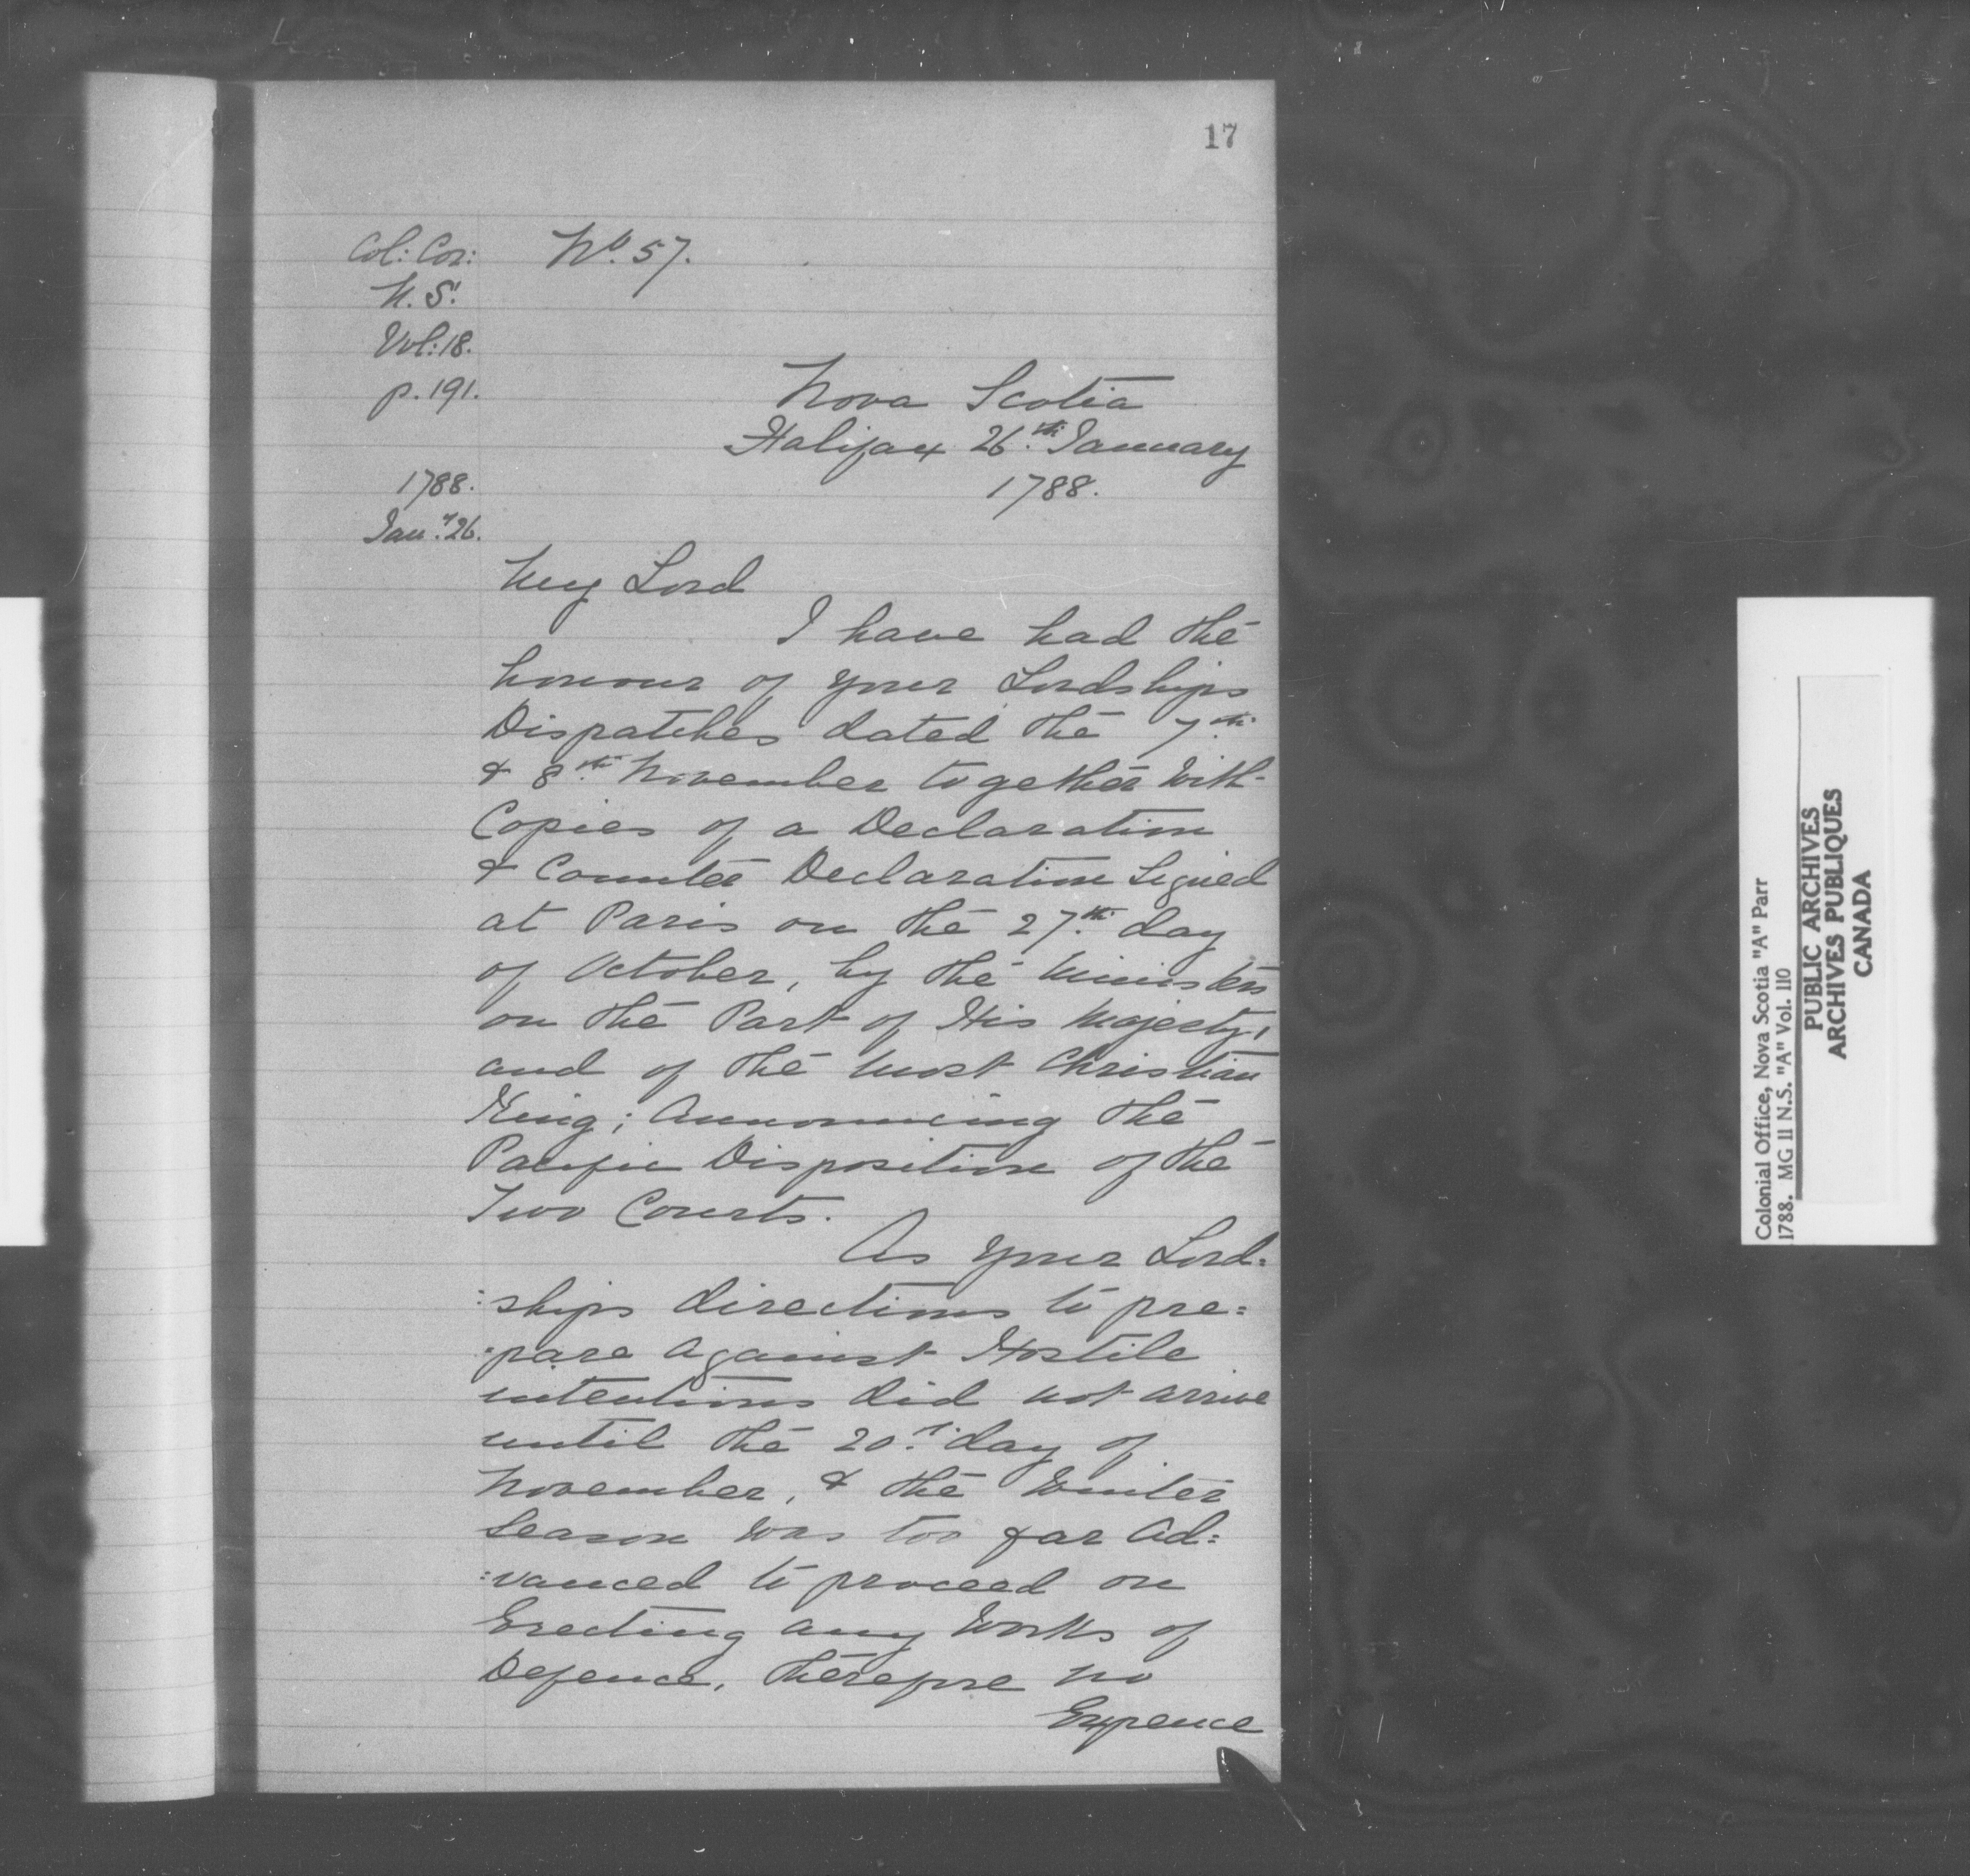 17
Col: Cor:
N. S.
Vol: 18.
p. 191.
1788.
Jan.y 26.
No. 57.
Nova Scotia
Halifax 26.th January
1788.
My Lord
I have had the
honour of your Lordships
Dispatches dated the 7.th
& 8.th November together with
Copies of a Declaration
& Counter Declaration Signed
at Paris on the 27.th day
of October, by the Ministers
on the Part of His Majesty,
and of the Most Christian
King; Announcing the
Pacific Disposition of the
Two Courts.
As your Lord=
:ships directions to pre=
:pare Against Hostile
intentions did not arrive
until the 20.th day of
November, & the Winter
Season was too far Ad=
:vanced to proceed on
Erecting any Works of
Defence, therefore no
Expence
Colonial Office, Nova Scotia "A" Parr
1788. MG 11 N.S. "A" Vol. 110
PUBLIC ARCHIVES
ARCHIVES PUBLIQUES
CANADA